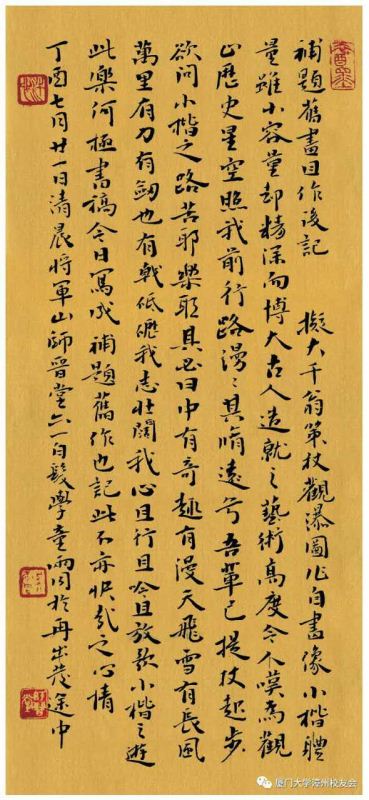 補題舊畫目作後記　擬大千翁策杖觀瀑圖作自畫像小楷體
量雖小容量却精深向博大古人造就之藝術高度令人嘆為觀
止歷史星空照我前行路漫漫其脩遠兮吾輩已提杖起步
欲問小楷之路苦耶樂耶具必曰中有奇趣有漫天飛雪有長風
萬里有刀有劍也有戟低礎我志壯闊我心且行且吟且放歌小楷之遊
此樂何極書稿今日寫成補題舊作也記此不亦快哉之心情
丁酉七月廿一日清晨將軍山師晉堂六一白髮學童雨同於再出發途中
厦门大学漳州校友会